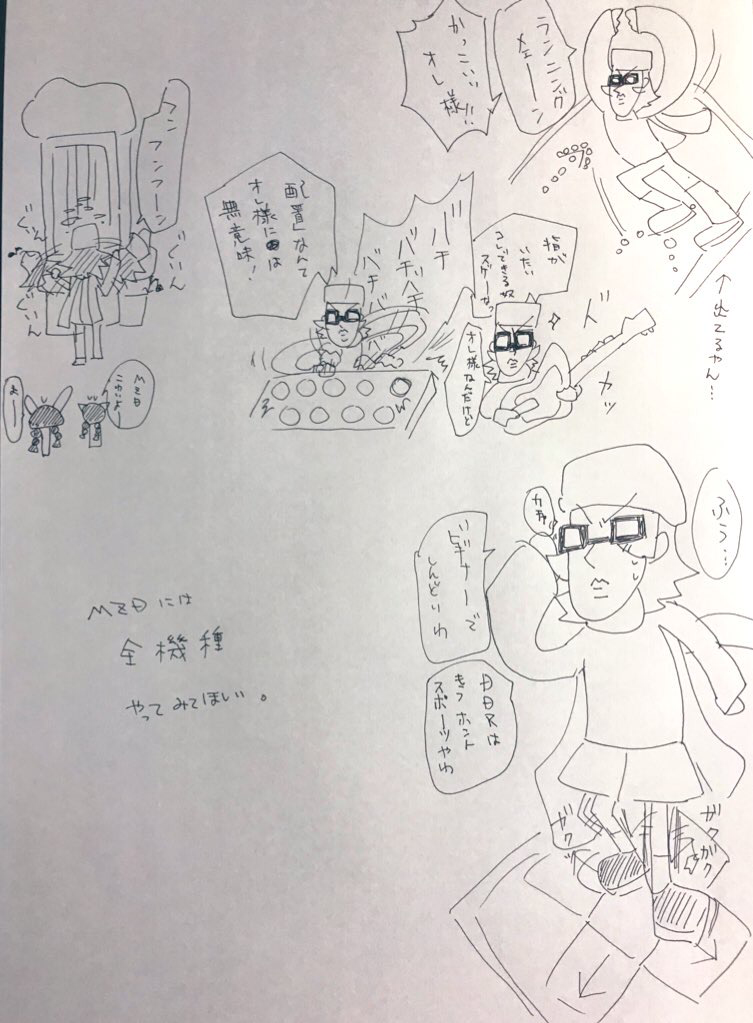 ランニング
メェーン
かっこいい
オレ様!!
↑出てるやん…
指が
いたい
コレできる奴
スゲーな
オレ様なんだけど
ド
カッ
バチ
バチバチ
バチバ
「配置」なんて
オレ様には
無意味!
フン
フンフーン
ぐいん
ぐいん
ぐいん
ぐいん
MZD
よー
ふぅ…
カチャ
ビギナーで
しんどいわ
DDRは
きつ ホント
スポーツやわ
ガクッ
ガク
ガク
MZDには
全機種
やってみてほしい。